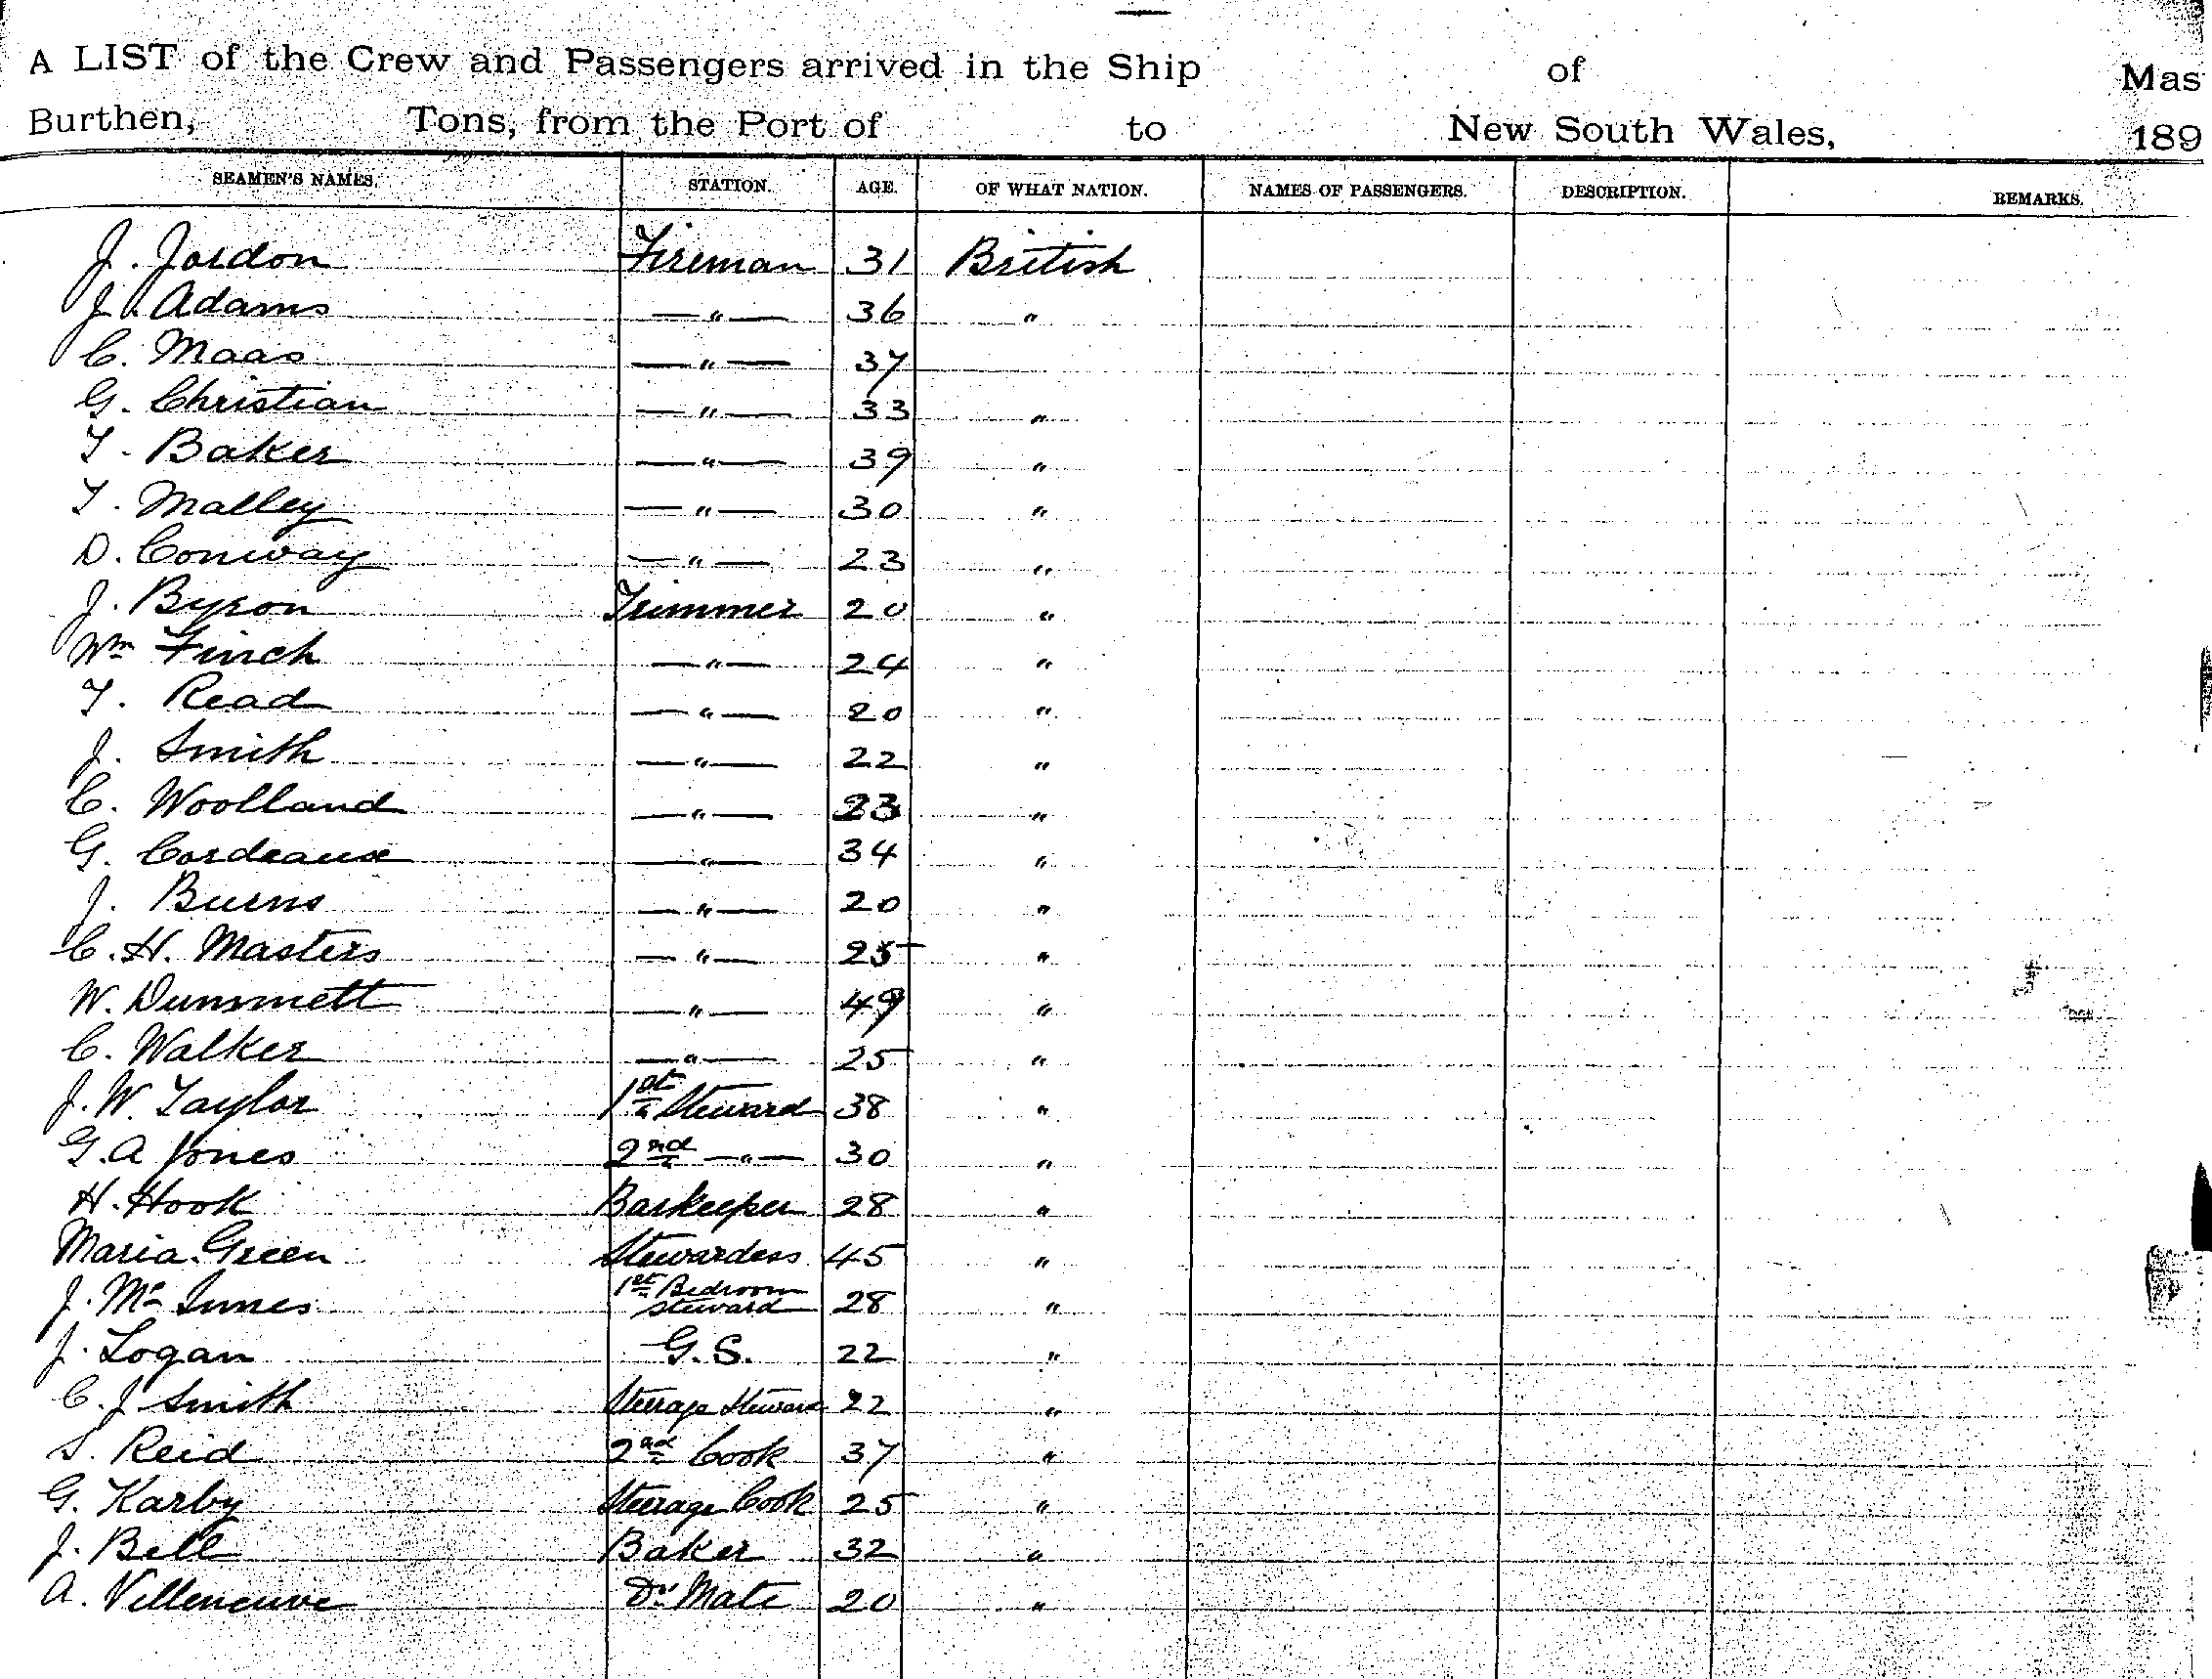 A LIST of the Crew and Passengers arrived in the Ship of Mas
Burthen, Tons, from the Port of to New South Wales, 189
SEAMEN'S NAMES. STATION. AGE. OF WHAT NATION. NAMES OF PASSENGERS. DESCRIPTION. REMARKS.
J. Jordon Fireman 31 British
J. Adams — " — 36 "
C. Maas — " — 37
G. Christian — " — 33 "
T. Baker — " — 39 "
T. Malley — " — 30 "
D. Conway — " — 23 "
J. Byron Trimmer 20 "
Wm Finch — " — 24 "
T. Read — " — 20 "
J. Smith — " — 22 "
C. Woolland — " — 23 "
G. Cordeaux — " — 34 "
J. Burns — " — 20 "
C. H. Masters — " — 25 "
W. Dummett — " — 49 "
C. Walker — " — 25 "
J. W. Taylor 1st Steward 38 "
G. A Jones 2nd — " — 30 "
H. Hook Barkeeper 28 "
Maria Green Stewardess 45 "
J. Mc Innes 1st Bedroom steward 28 "
J. Logan G. S. 22 "
C. J Smith Steerage Steward 22 "
S. Reid 2nd Cook 37 "
G. Karby Steerage Cook 25 "
J. Bell Baker 32 "
A. Villeneuve Do Mate 20 "